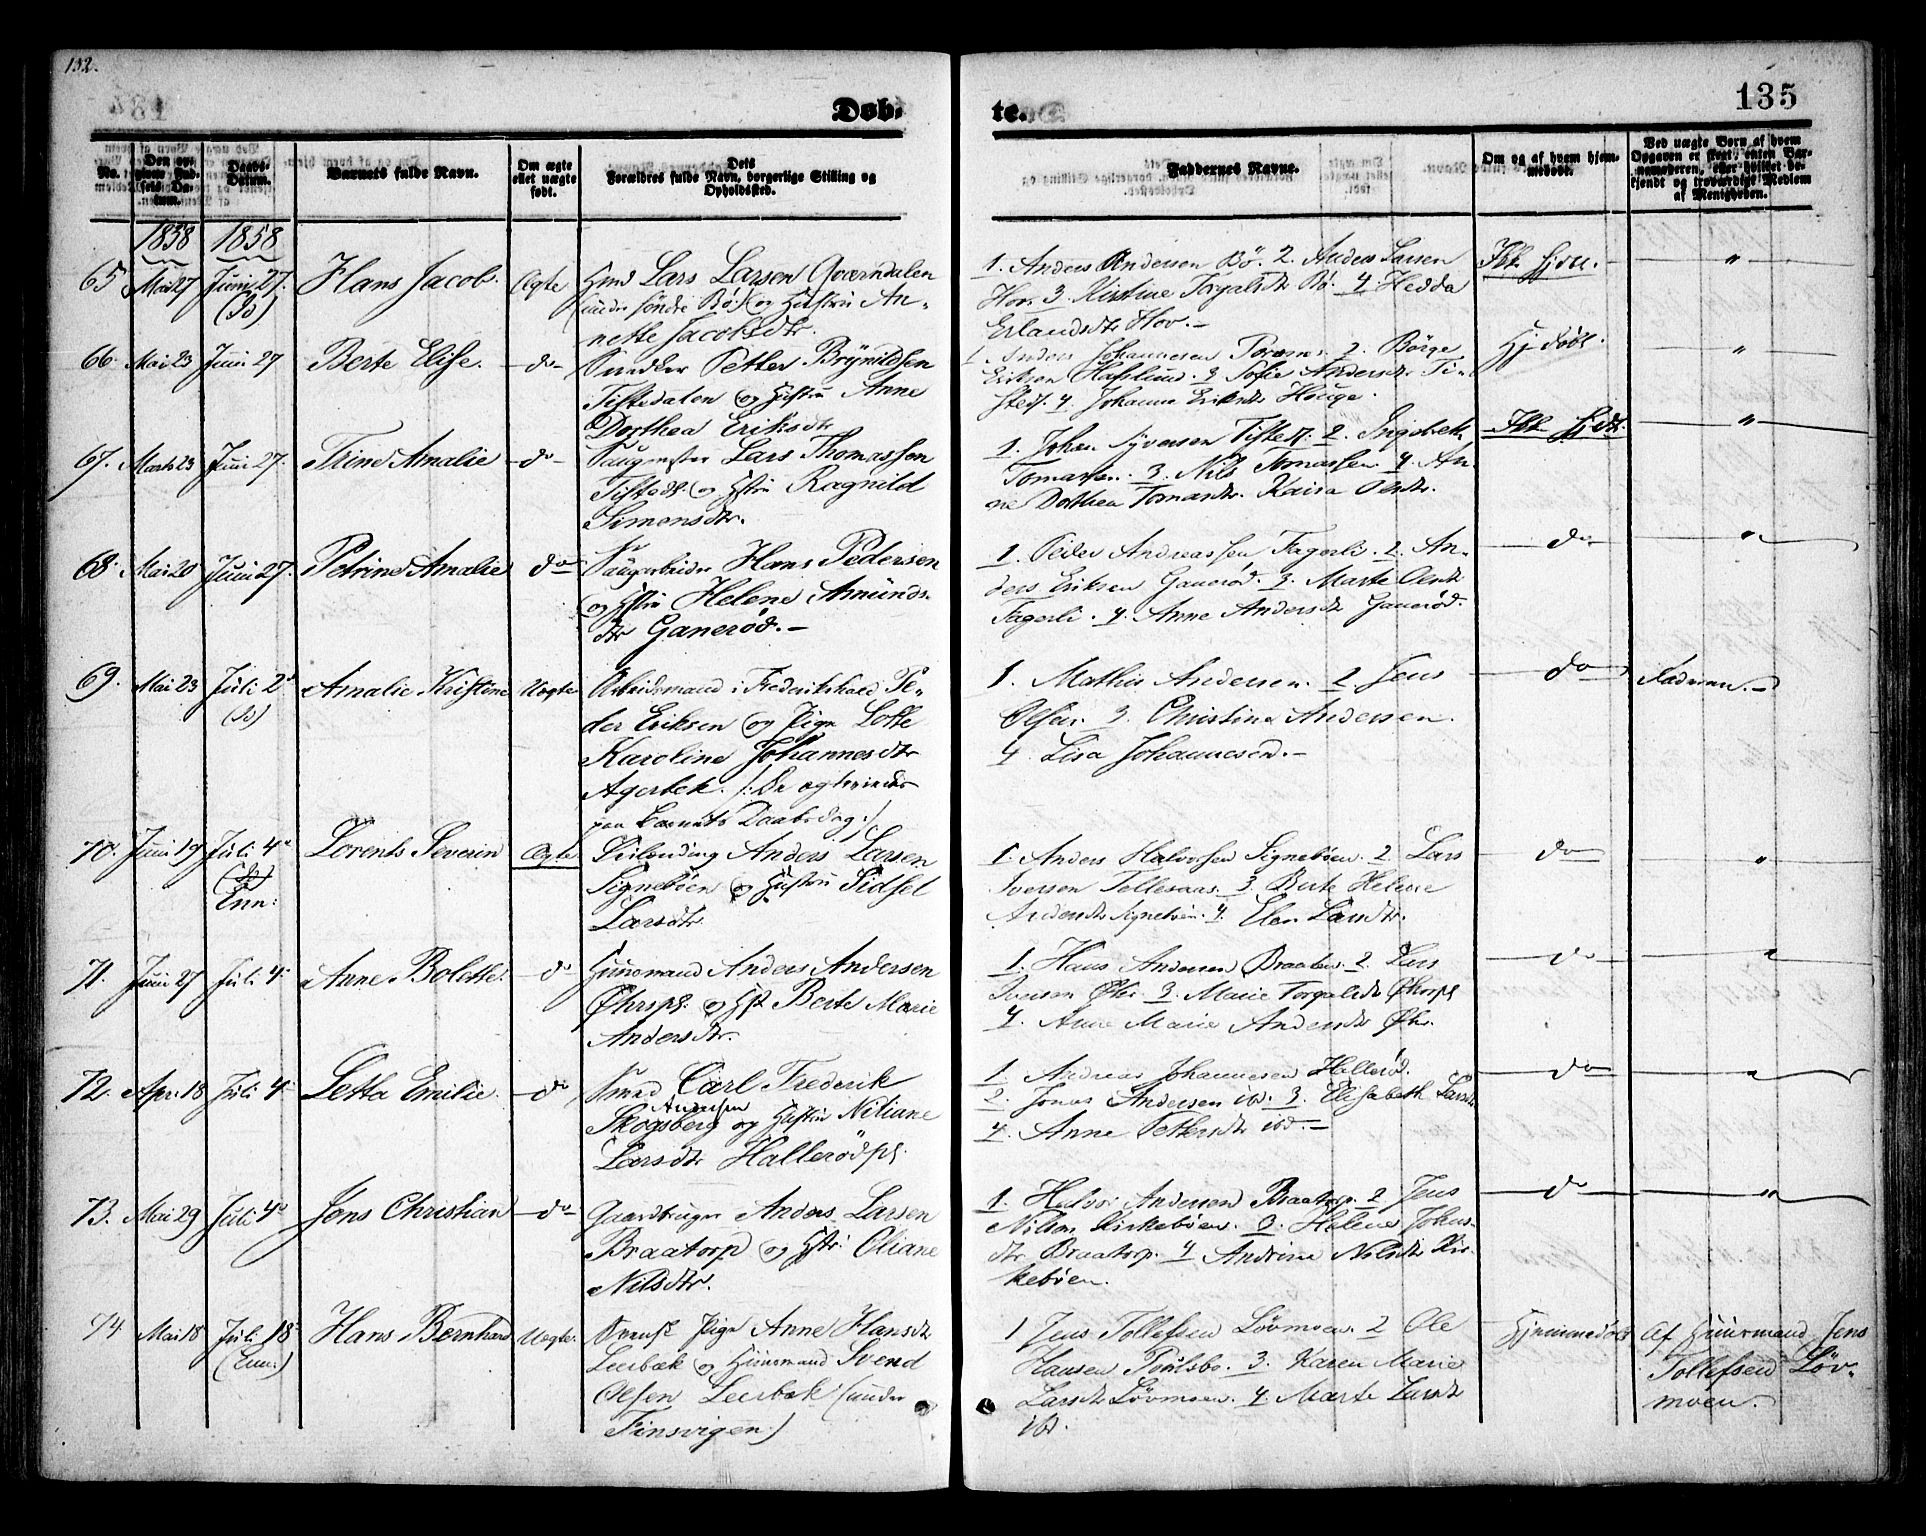 132.
135
Døb-
te.
No.
Den opgivne Fødsels Datum.
Daabs-Datum.
Barnets fulde Navn.
Om ægte eller uægte født.
Dets Forældres fulde Navn, borgerlige Stilling og Opholdssted.
Faddernes Navne.
Om og af hvem hjemmedøbt.
Ved uægte Børn af hvem Opgaven er skeet, enten Barnemoderen, eller hvilket bekjendt og troværdigt Medlem af Menigheden.
1858 1858
65 Mai 27 Juni 27. (Id) Hans Jacob. Ægte
Lars Larsen Qværndalen
(under søndre Bø) og Hustru An-
nette Jacobsdtr.
1. Anders Andersen Bø. 2. Anders Larsen
Hov. 3. Kirstine Torgalsdtr Bø. 4 Hedda
Erlandsdtr Hov.-
Ikke Hj.
"
66. Mai 23 Juni 27 Berte Elise. do-
Snedker Petter Brynildsen
Tistedalen og Hustru Anne
Dorthea Eriksdtr
1 Anders Johannesen 2. Børge
Eriksen Hafslund. 3 Sofie Andersdtr Ti-
sted. 4. Johanne Eriksdtr Houge.
Hj. døbt.
"
67. Marts 23 Juni 27. Trine Amalie do-
Saugmester Lars Thomassen
Tistedl. og Hstru Ragnild
Simensdtr.
1. Johan Syversen Tisted. 2. Ingebret
Tomassen. 3. Nils Tomassen 4. An-
ne Dorthea Tomasdtr. Kaisa Olsdtr.
Ikke Hjdt.
"
68. Mai 20 Juni 27. Petrine Amalie do
Saugarbeider Hans Pedersen
og Hstru Helene Asmunds-
dtr Ganerød.-
1. Peder Andreassen Fagerli. 2. An-
ders Eriksen Ganerød. 3 Marte Olsdtr
Fagerli. 4. Anne Andersdtr Ganerød.
do
"
69. Mai 23 Juli 2d (Id) Amalie Kristine Uægte
Arbeidsmand i Frederikshald Pe-
der Eriksen og Pige Lotte
Karoline Johannesdtr
Agerbek. /: De ægtevies
paa Barnets Daabsdag:/
1. Mathis Andersen. 2. Jens
Olsen. 3. Christine Andersen.
4. Lisa Johannesen.-
do
Fadderen.-
70. Juni 19 Juli 4d (Id) Enn: Lorents Severin Ægte
Anders Larsen
Signebøen og Hustru Sidsel
Larsdtr
1. Anders Halvorsen Signebøen. 2 Lars
Iversen Tollesaas. 3. Berte Helene
Andersdtr Signebøen. 4. Elen Larsdtr.
do
"
71. Juni 27 Juli 4. Anne Bolette. do
Huusmand Anders Andersen
Ørspl. og Hst Berte Marie
Andersdtr.
1. Hans Andersen Braaten. 2. Lars
Iversen 3. Marie Torgalsdtr
4. Anne Marie Andersdtr
do
"
72. Apr. 18 Juli 4 Letta Emilie. do
Smed Carl Frederik
Andersen
Skogsberg og Hustru Niliane
Larsdtr Hallerødpl.
1. Andreas Johannesen Hallerød.
2. Jonas Andersen ibd. 3. Elisabeth Larsdtr
4. Anne Pettersdtr ibd.-
do
"
73. Mai 29 Juli 4d Jens Christian do
Gaardbruger Anders Larsen
Braatorp og Hstr. Oliane
Nilsdtr.
1. Halvor Andersen Braatorp. 2 Jens
Nilsen Kirkebøen. 3. Helene Johns-
dtr Braatorp. 4 Andrine Nilsdtr Kir-
kebøen.
do
"
74 Mai 18 Juli 18 (Enn.) Hans Bernhard Uægte.
Svensk Pige Anne Hansdtr
Leerbæk og Huusmand Svend
Olsen Leerbæk (under
Finsvigen)
1 Jens Tollefsen Løvmoen. 2 Ole
Hansen Poulsbo. 3. Karen Marie
Larsdtr Løvmoen. 4. Marte Larsdtr
ibd.
Hjemmedøbt
Af Huusmand Jens
Tollefsen Løv-
moen.